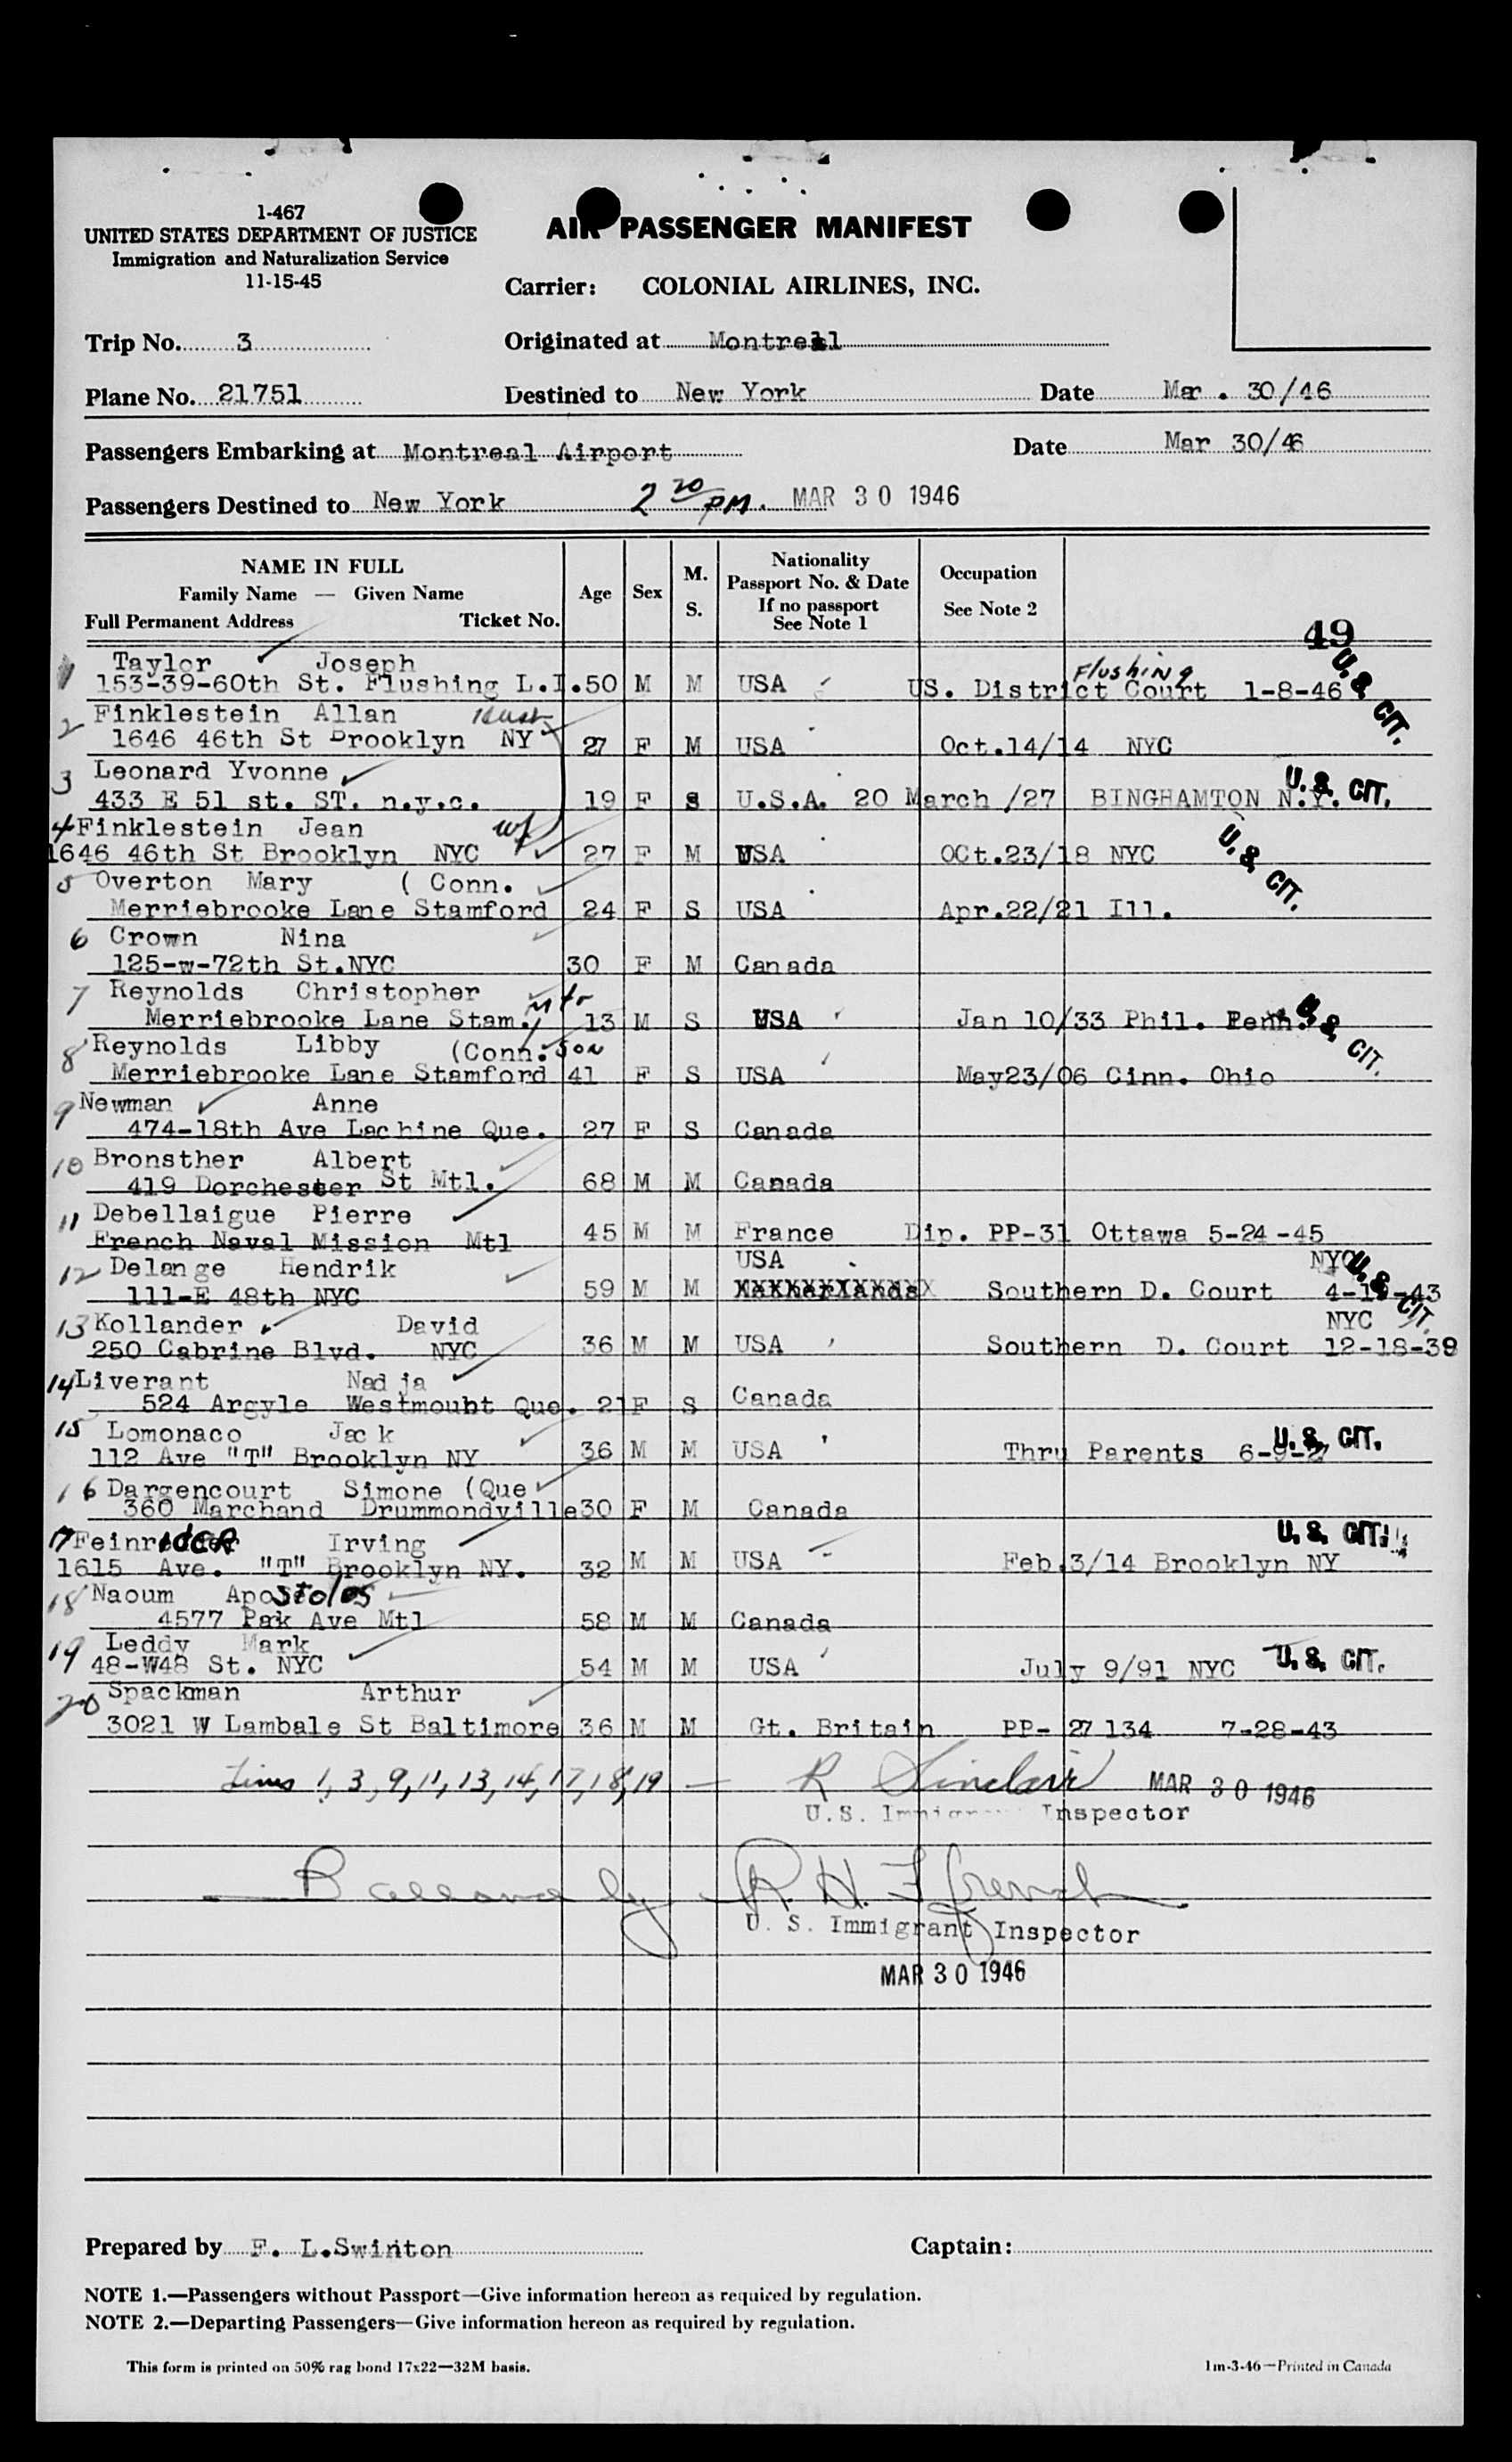 1-467
UNITED STATES DEPARTMENT OF JUSTICE
Immigration and Naturalization Service
11-15-45
AIR PASSENGER MANIFEST
Carrier: COLONIAL AIRLINES, INC.
Trip No. 3
Originated at Montreal
Plane No. 21751
Destined to New York Date Mar . 30/46
Passengers Embarking at Montreal Airport Date Mar 30/46
Passengers Destined to New York 2 20 PM. MAR 30 1946
NAME IN FULL
Family Name — Given Name
Full Permanent Address Ticket No.
Age
Sex
M.
S.
Nationality
Passport No. & Date
If no passport
See Note 1
Occupation
See Note 2
49
Taylor Joseph
153-39-60th St. Flushing L.I. 50 M M USA US. District Court 1-8-46 Flushing U.S. CIT.
2 Finklestein Allan
1646 46th St Brooklyn NY 27 F M USA Oct.14/14 NYC
3 Leonard Yvonne
433 E 51 st. ST. n.y.c. 19 F S U.S.A. 20 March /27 BINGHAMTON N.Y. U.S. CIT.
4 Finklestein Jean wf
1646 46th St Brooklyn NYC 27 F M USA OCt.23/18 NYC U.S. CIT.
5 Overton Mary ( Conn.
Merriebrooke Lane Stamford 24 F S USA Apr.22/21 Ill.
6 Crown Nina
125-w-72th St.NYC 30 F M Canada
7 Reynolds Christopher
Merriebrooke Lane Stam. 13 M S USA Jan 10/33 Phil. Penn. U.S. CIT.
8 Reynolds Libby (Conn. son
Merriebrooke Lane Stamford 41 F S USA May23/06 Cinn. Ohio
9 Newman Anne
474-18th Ave Lachine Que. 27 F S Canada
10 Bronsther Albert
419 Dorchester St Mtl. 68 M M Canada
11 Debellaigue Pierre
French Naval Mission Mtl 45 M M France Dip. PP-31 Ottawa 5-24-45
12 Delange Hendrik USA NYC U.S. CIT.
111-E 48th NYC 59 M M Southern D. Court 4-19-43
13 Kollander David NYC
250 Cabrine Blvd. NYC 36 M M USA Southern D. Court 12-18-39
14 Liverant Nadja
524 Argyle Westmount Que. 21 F S Canada
15 Lomonaco Jack
112 Ave "T" Brooklyn NY 36 M M USA Thru Parents 6-9-27 U.S. CIT.
16 Dargencourt Simone (Que
360 Marchand Drummondville 30 F M Canada
17 Feinrider Irving U.S. CIT.
1615 Ave. "T" Brooklyn NY. 32 M M USA Feb.3/14 Brooklyn NY
18 Naoum Apostolos
4577 Pak Ave Mtl 58 M M Canada
19 Leddy Mark
48-W48 St. NYC 54 M M USA July 9/91 NYC U.S. CIT.
20 Spackman Arthur
3021 W Lambale St Baltimore 36 M M Gt. Britain PP- 27134 7-28-43
Lines 1, 3, 9, 11, 13, 14, 17, 18, 19 — R Sinclair MAR 30 1946
U.S. Immigrant Inspector
Balance by R. H. French
U. S. Immigrant Inspector
MAR 30 1946
Prepared by F. L.Swinton Captain:
NOTE 1.—Passengers without Passport—Give information hereon as required by regulation.
NOTE 2.—Departing Passengers—Give information hereon as required by regulation.
This form is printed on 50% rag bond 17x22—32M basis. 1m-3-46—Printed in Canada